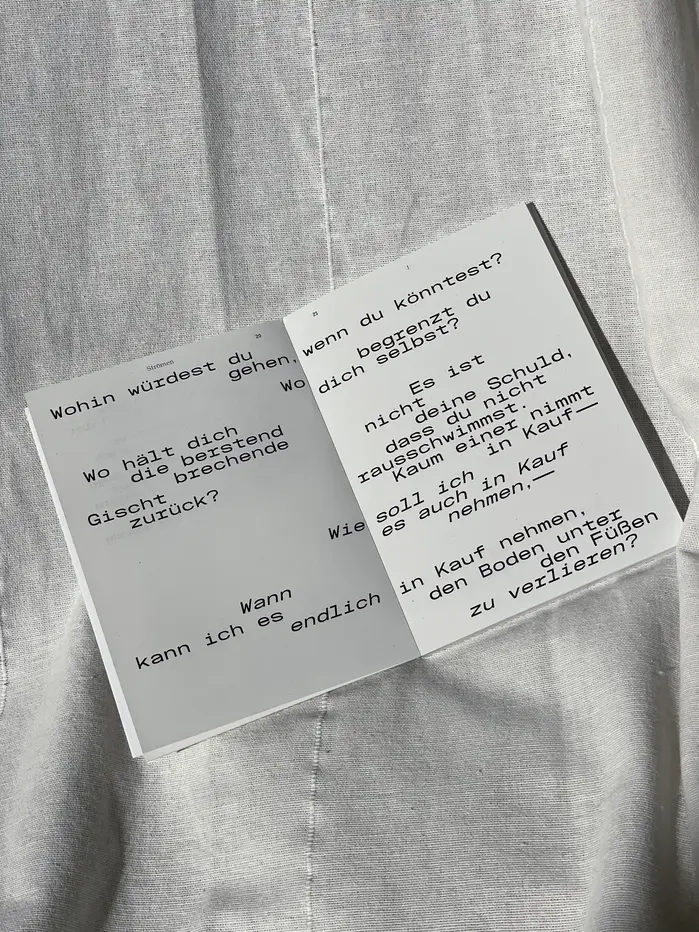 Strömen
20
Wohin würdest du
gehen,
Wo
Wo hält dich
die berstend
brechende
Gischt
zurück?
Wie
Wann
kann ich es
endlich
21
wenn du könntest?
begrenzt du
dich selbst?
Es ist
nicht
deine Schuld,
dass du nicht
rausschwimmst.
Kaum einer nimmt
in Kauf—
soll ich
es auch in Kauf
nehmen,—
in Kauf nehmen,
den Boden unter
den Füßen
zu verlieren?